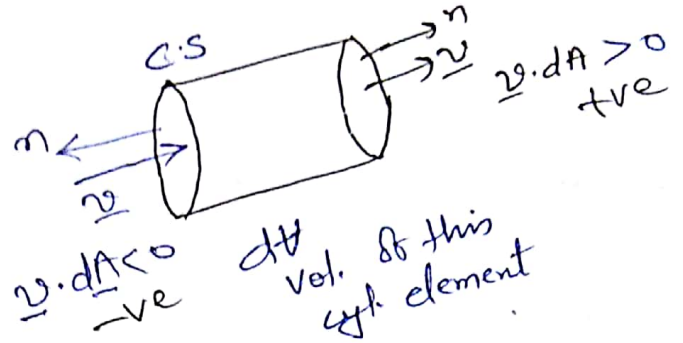 C.S
n
v
v.dA > 0
+ve
n
v
v.dA < 0
-ve
dV
vol. of this
cyl. element